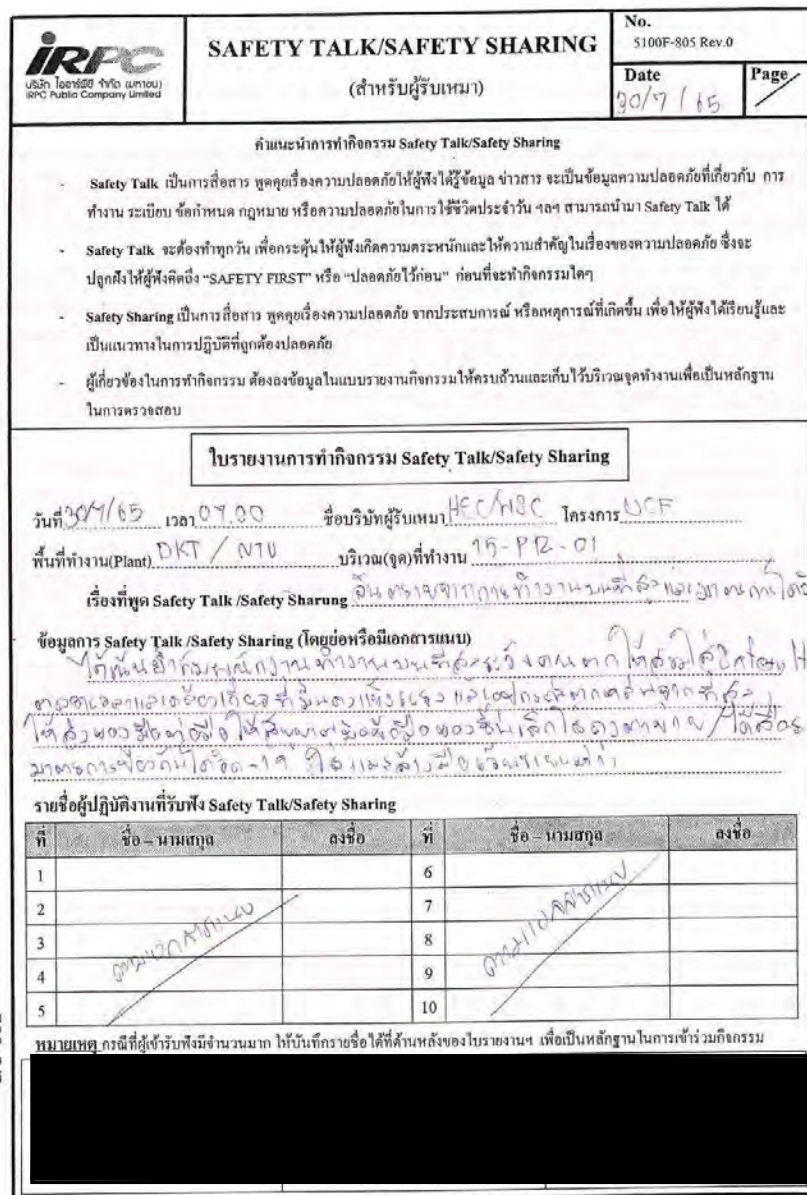 IRPC
บริษัท ไออาร์พีซี จำกัด (มหาชน)
IRPC Public Company Limited
SAFETY TALK/SAFETY SHARING
(สำหรับผู้รับเหมา)
No.
5100F-805 Rev.0
Date
30/7/65
Page
คำแนะนำการทำกิจกรรม Safety Talk/Safety Sharing
- Safety Talk เป็นการสื่อสาร พูดคุยเรื่องความปลอดภัยให้ผู้ฟังได้รู้ข้อมูล ข่าวสาร จะเป็นข้อมูลความปลอดภัยที่เกี่ยวกับ การ
ทำงาน ระเบียบ ข้อกำหนด กฎหมาย หรือความปลอดภัยในการใช้ชีวิตประจำวัน ฯลฯ สามารถนำมา Safety Talk ได้
- Safety Talk จะต้องทำทุกวัน เพื่อกระตุ้นให้ผู้ฟังเกิดความตระหนักและให้ความสำคัญในเรื่องของความปลอดภัย ซึ่งจะ
ปลูกฝังให้ผู้ฟังคิดถึง “SAFETY FIRST” หรือ “ปลอดภัยไว้ก่อน” ก่อนที่จะทำกิจกรรมใดๆ
- Safety Sharing เป็นการสื่อสาร พูดคุยเรื่องความปลอดภัย จากประสบการณ์ หรือเหตุการณ์ที่เกิดขึ้น เพื่อให้ผู้ฟังได้เรียนรู้และ
เป็นแนวทางในการปฏิบัติที่ถูกต้องปลอดภัย
- ผู้เกี่ยวข้องในการทำกิจกรรม ต้องลงข้อมูลในแบบรายงานกิจกรรมให้ครบถ้วนและเก็บไว้บริเวณจุดทำงานเพื่อเป็นหลักฐาน
ในการตรวจสอบ
ใบรายงานการทำกิจกรรม Safety Talk/Safety Sharing
วันที่ 30/7/65 เวลา 07.00 ชื่อบริษัทผู้รับเหมา HEC/WSC โครงการ UCF
พื้นที่ทำงาน(Plant) DKT / NTU บริเวณ(จุด)ที่ทำงาน 15-PR-01
เรื่องที่พูด Safety Talk /Safety Sharung อันตรายจากการทำงานบนที่สูง และมาตรการโควิ
ข้อมูลการ Safety Talk /Safety Sharing (โดยย่อหรือมีเอกสารแนบ)
ได้เน้นย้ำกับพนักงานทำงานบนที่สูงระวังคนตก ให้สวมใส่
ตลอดเวลาและเกี่ยวเกี่ยวที่มั่นคงแข็งแรง และอุปกรณ์ตกหล่นจากที่สูง
ให้ส่งของมือต่อมือ
มาตรการป้องกันโควิด-19 ใส่แมสล้างมือ
รายชื่อผู้ปฏิบัติงานที่รับฟัง Safety Talk/Safety Sharing
ที่ ชื่อ – นามสกุล ลงชื่อ ที่ ชื่อ – นามสกุล ลงชื่อ
1 6
2 7
3 ตามเอกสารแนบ 8 ตามเอกสารแนบ
4 9
5 10
หมายเหตุ กรณีที่ผู้เข้ารับฟังมีจำนวนมาก ให้บันทึกรายชื่อได้ที่ด้านหลังของใบรายงานฯ เพื่อเป็นหลักฐานในการเข้าร่วมกิจกรรม